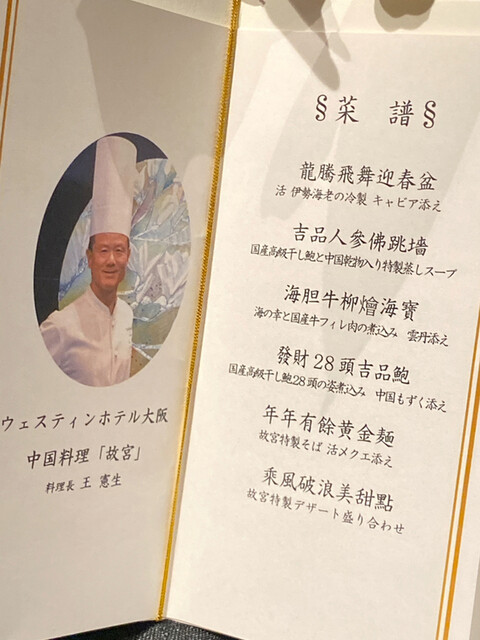 ウェスティンホテル大阪
中国料理「故宮」
料理長 王 憲生
§ 菜 譜 §
龍騰飛舞迎春盆
活 伊勢海老の冷製 キャビア添え
吉品人參佛跳墻
国産高級干し鮑と中国乾物入り特製蒸しスープ
海胆牛柳燴海寶
海の幸と国産牛フィレ肉の煮込み 雲丹添え
發財28頭吉品鮑
国産高級干し鮑28頭の姿煮込み 中国もずく添え
年年有餘黄金麺
故宮特製そば 活メクエ添え
乘風破浪美甜點
故宮特製デザート盛り合わせ